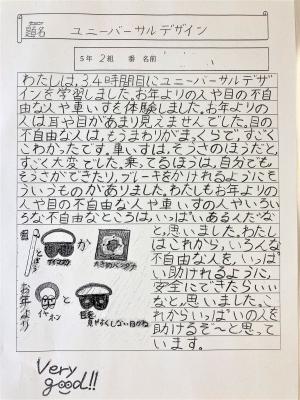 題名 ユニバーサルデザイン
5年 2組 番 名前
わたしは、34時間目にユニーバーサルデザ
インを学習しました。お年よりの人や目の不自
由な人や車いすを体験しました。お年よりの
人は耳や目があまり見えませんでした。目の
不自由な人は、もうまわりがまっくらで、すごく
こわかったです。車いすは、そうさのほうだと、
すごく大変でした。乗ってるほうは、自分でも
そうさができたり、ブレーキをかけれるようにそ
ういうものがありました。わたしもお年よりの
人や目の不自由な人や車いすの人やいろい
ろな不自由なところは、いっぱいある人だな
と、思いました。わたし
はこれから、いろんな
不自由な人を、いっぱ
い助けれるように、
安全にできたらいい
なと。思いました。こ
れからいっぱいの人を
助けるぞ〜と思って
います。
目
か
アイマスク
大きめバンダナ
お年より
イヤホン
と
目を
見やすくしないめがね
Very
good!!